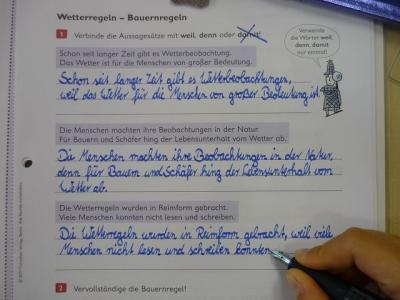 Wetterregeln – Bauernregeln
1 Verbinde die Aussagesätze mit weil, denn oder damit!
Verwende
die Wörter weil,
denn, damit
nur einmal!
Schon seit langer Zeit gibt es Wetterbeobachtung.
Das Wetter ist für die Menschen von großer Bedeutung.
Schon seit langer Zeit gibt es Wetterbeobachtungen,
weil das Wetter für die Menschen von großer Bedeutung ist.
Die Menschen machten ihre Beobachtungen in der Natur.
Für Bauern und Schäfer hing der Lebensunterhalt vom Wetter ab.
Die Menschen machten ihre Beobachtungen in der Natur,
denn für Bauern und Schäfer hing der Lebensunterhalt vom
Wetter ab.
Die Wetterregeln wurden in Reimform gebracht.
Viele Menschen konnten nicht lesen und schreiben.
Die Wetterregeln wurden in Reimform gebracht, weil viele
Menschen nicht lesen und schreiben konnten
2 Vervollständige die Bauernregel!